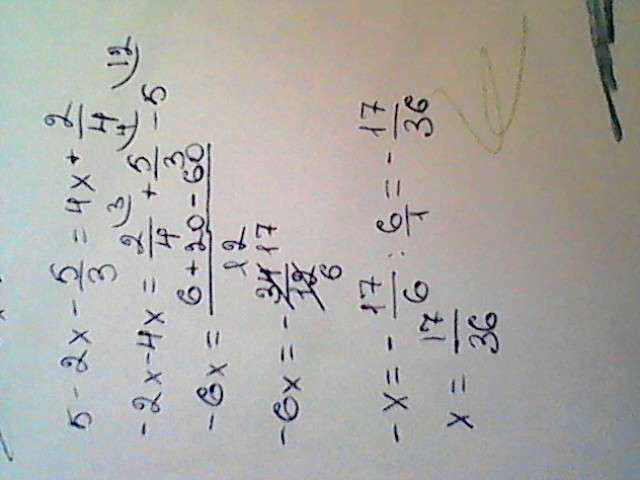 5 - 2x - 5/3 = 4x + 2/4
-2x - 4x = 2/4 + 5/3 - 5
-6x = (6 + 20 - 60)/12
-6x = - 34/12 17/6
-x = - 17/6 : 6/1 = - 17/36
x = 17/36